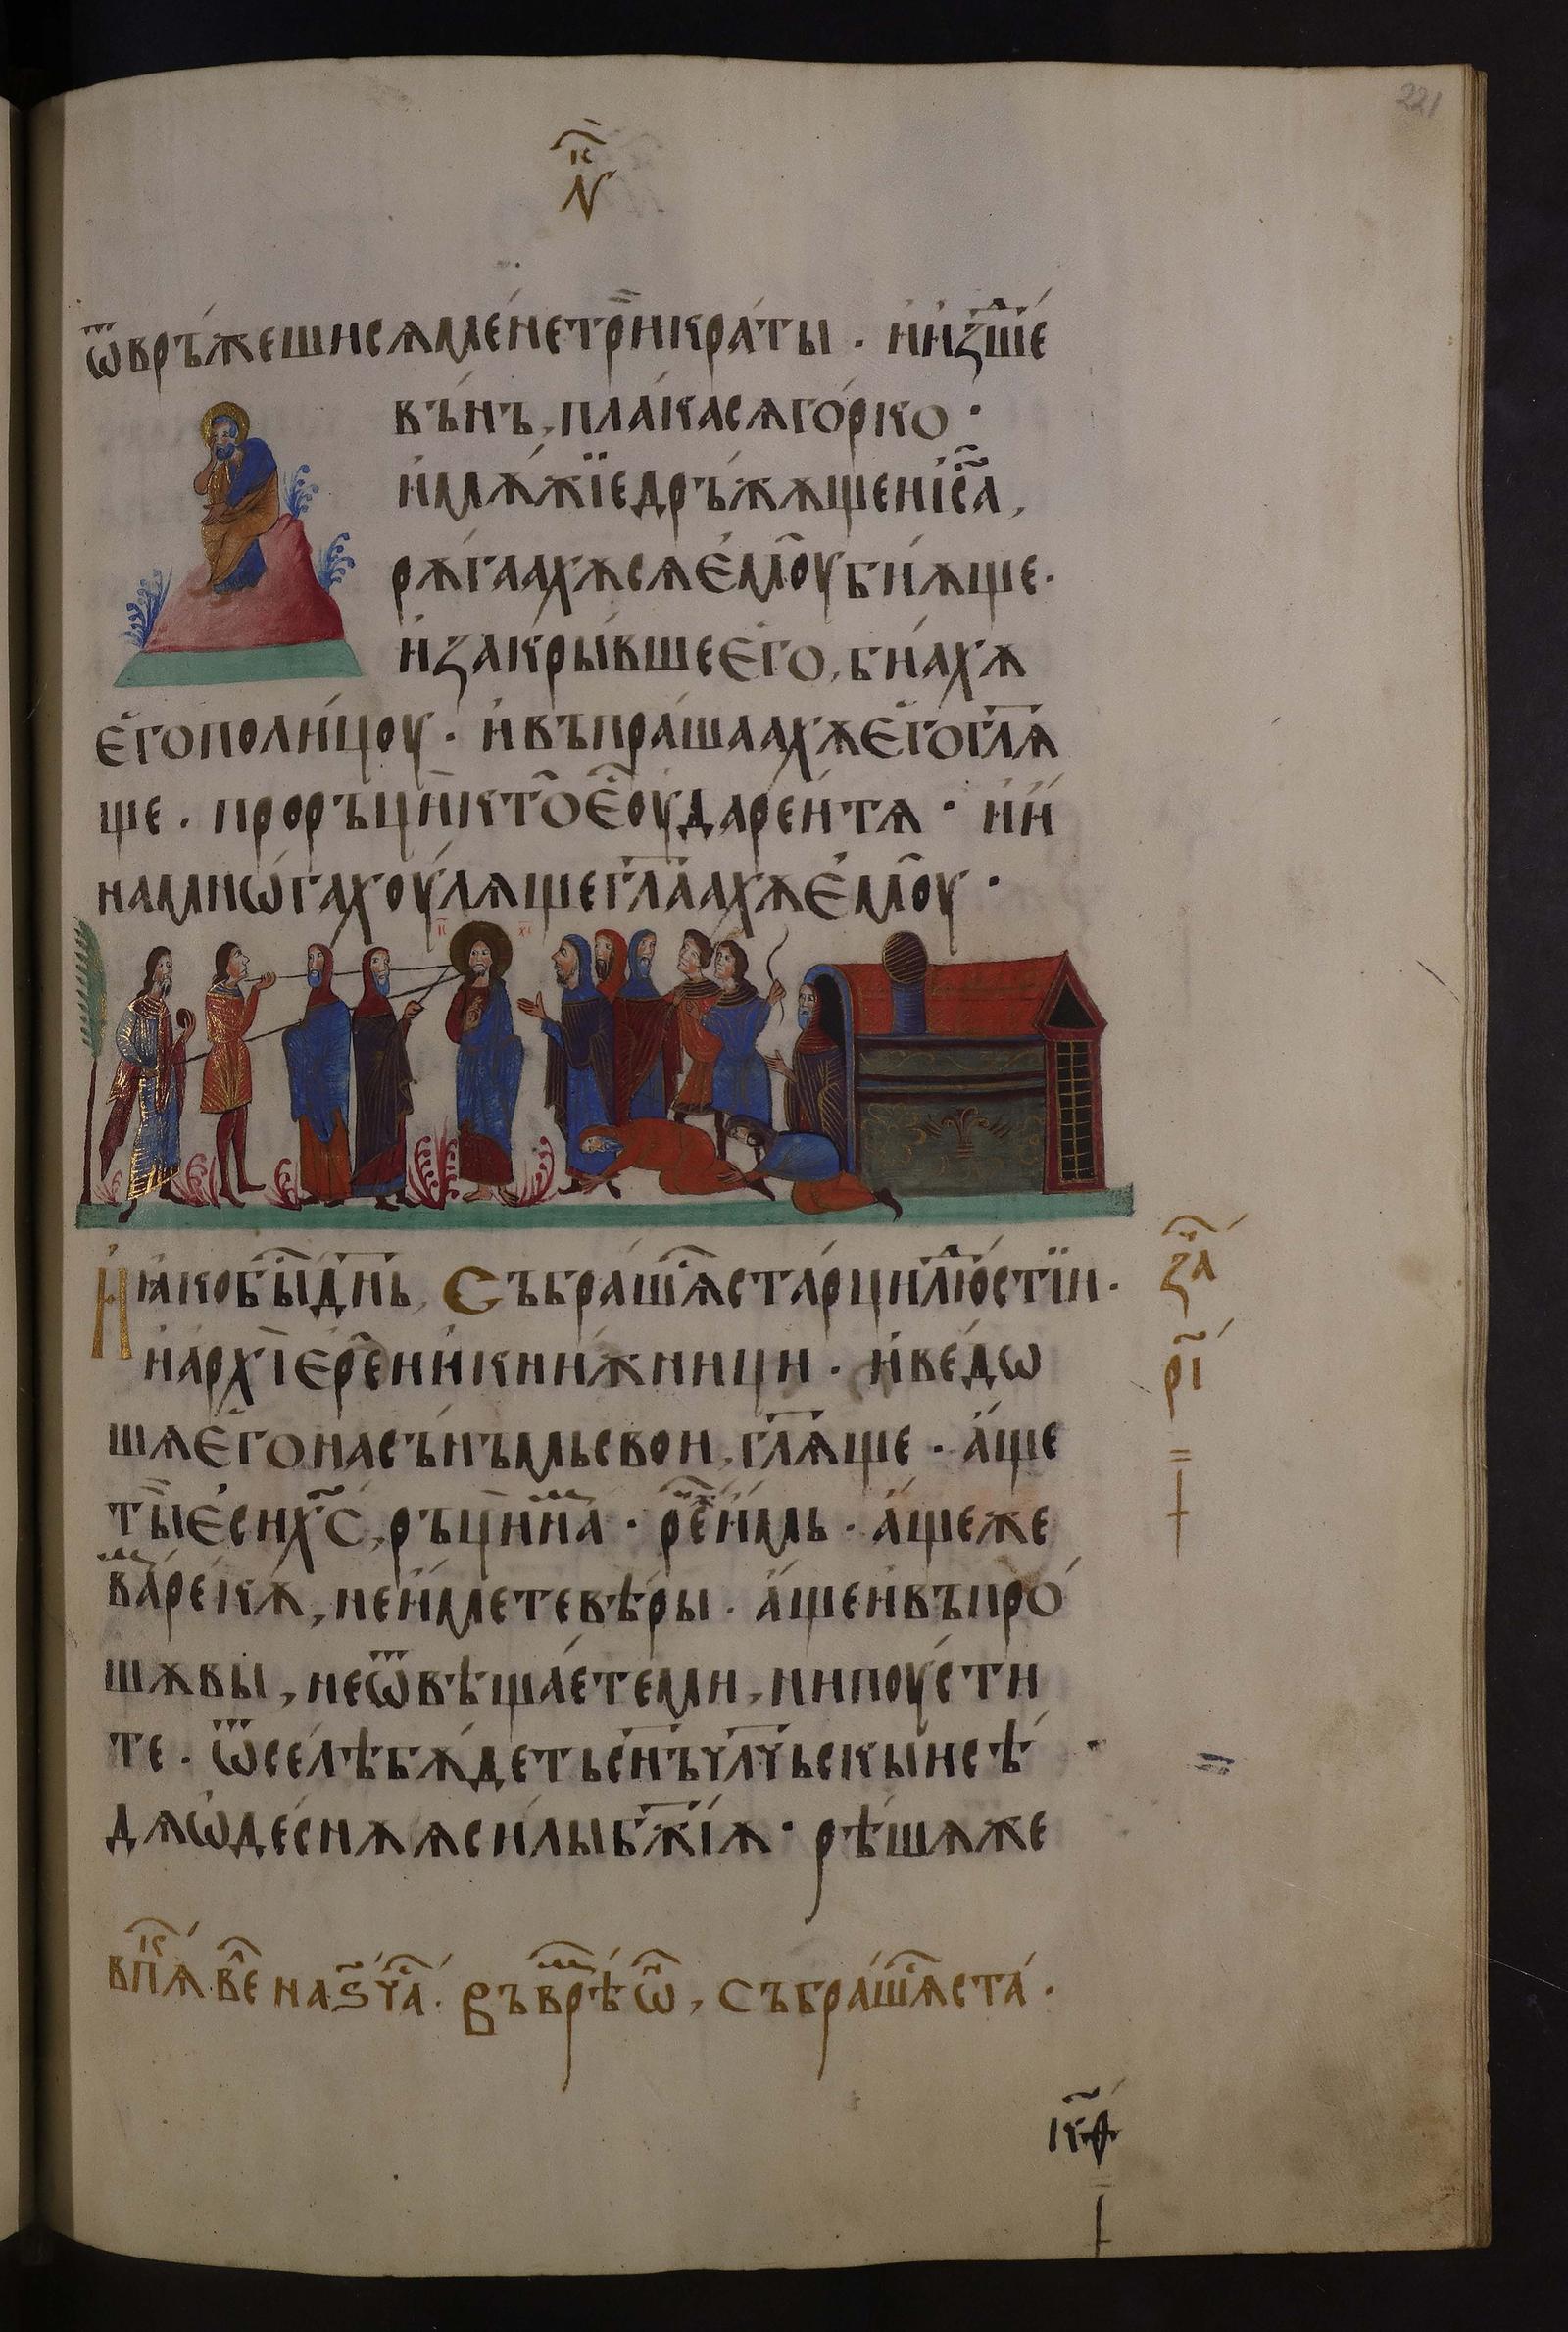 221
к҃
N
ѿврь́жешисѧмене́три̏кра́ты · и҆и҆зше́
въ́нъ, пла́касѧго́рко ·
и҆мѫ́жїедръ́жѫщеиі҆с҃а,
рѫ́гаахѫсѧе҆мꙋ̑би́ѫще ·
и҆закры́вшеего̀, бїа́хѫ
е҆гополи́цоу · и҆въпра́шаахѫе҆гогл҃ѧ́
ще · прорьци̏кто̑е҆оу҆да́рейтѧ · и҆и҆
намнѡ́гахоу́лѧщегл҃аахѫе҆моу̑ ·
І҃С Х҃С
И҆ꙗ҆кобы̑дн҃ь, Събра́шѧста́рцилю́стїи ·
и҆а҆рхїере̑и҆и҆кни́жници · и҆ве́дѡ
шѧе҆гонасъ́нъмьсвои, гл҃ѧще · а҆́ще
ты̏е҆сих҃с, рьци̏на · ре̑и҆мь · а҆́щеже
ва́реκѫ̀, неи҆́метевѣ́ры · а҆́щеи҆въпро́
шѫвы, неѿвѣща́етеми, нипоу́сти
те · ѿселѣ́бѫ́детьсн҃ъчл҃чьскыисѣ́
дѧѡ҆десно́ѫѧси́лыбж҃їѧ · рѣ́шѧже
за҃
рі҃
впⷦ҇ѧ в҃е на ѕ҃ ч҃а · Въврѣ́ѡ҆, събра́шѧста́ ·